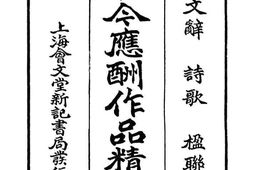 文辭 詩歌 楹聯
今應酬作品精
上海會文堂新記書局發行